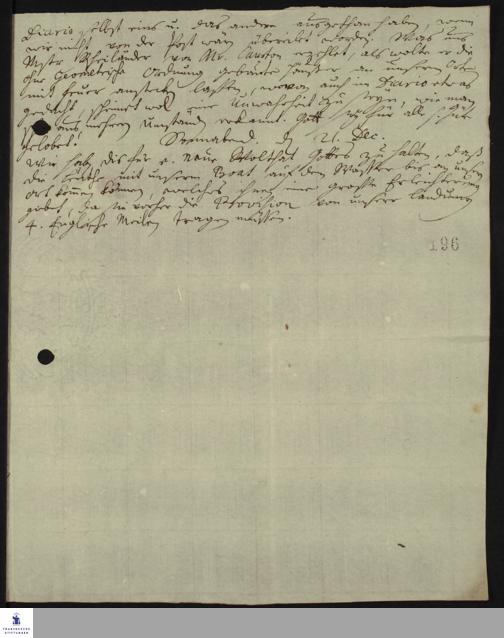 Diario selbst eins u. das andere ausgethan haben, wenn
wir nicht von der Post wären übereilet worden. Was uns
Mstr Schweiländer von Mr. Causton erzehlet, als wolte er die
ohne Geometrische Ordnung gebaute Häuser an unserm Orte
mit Feuer anstecken lassen, wovon auch im Diario etwas
gedacht, scheinet wol eine Unwahrheit zu seyn, wie man
aus mehrern Umständen erkennt. Gott sey für alles hier
gelobet!
Sonnabend d. 21. Dec.
Wir habens für e. neue Wolthat Gottes zu halten, daß
die Leuthe mit unserm Boat auf dem Wasser bis an unsern
Ort kommen können, welches ihnen eine grosse Erleichterung
giebet, da sie vorher die Provision von unserer Landung
4. Englische Meilen tragen müssen.
196
FRANCKESCHE
STIFTUNGEN